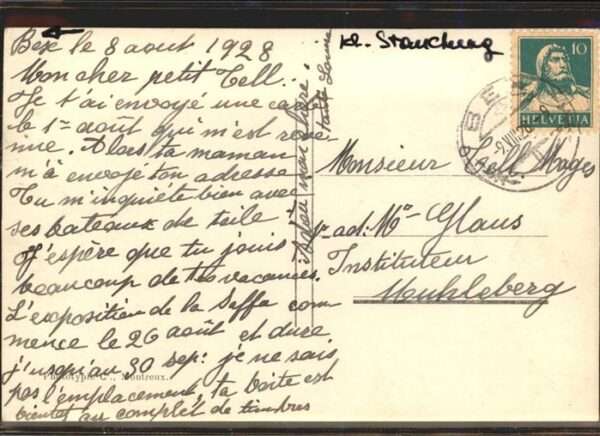 Bex le 8 aout 1928
Mon cher petit Tell.
Je t'ai envoyé une carte
le 1er août qui m'est reve
nue. Alors ta maman
m'a envoyé ton adresse
Tu m'inquiète bien avec
ses bateaux de toile
J'espère que tu jouis
beaucoup de tes vacances.
L'exposition de la Saffa com
mence le 26 août et dure
j'usqu'au 30 sep: je ne sais
pas l'emplacement, ta boite est
bientôt au complet de timbres
mon chéri
tante Louise
kl. Stauchung
10
HELVETIA
BEX
Monsieur Tell. Mages
p. ad: Mr Glaus
Instituteur
Muhleberg
Phototypie Co., Montreux.